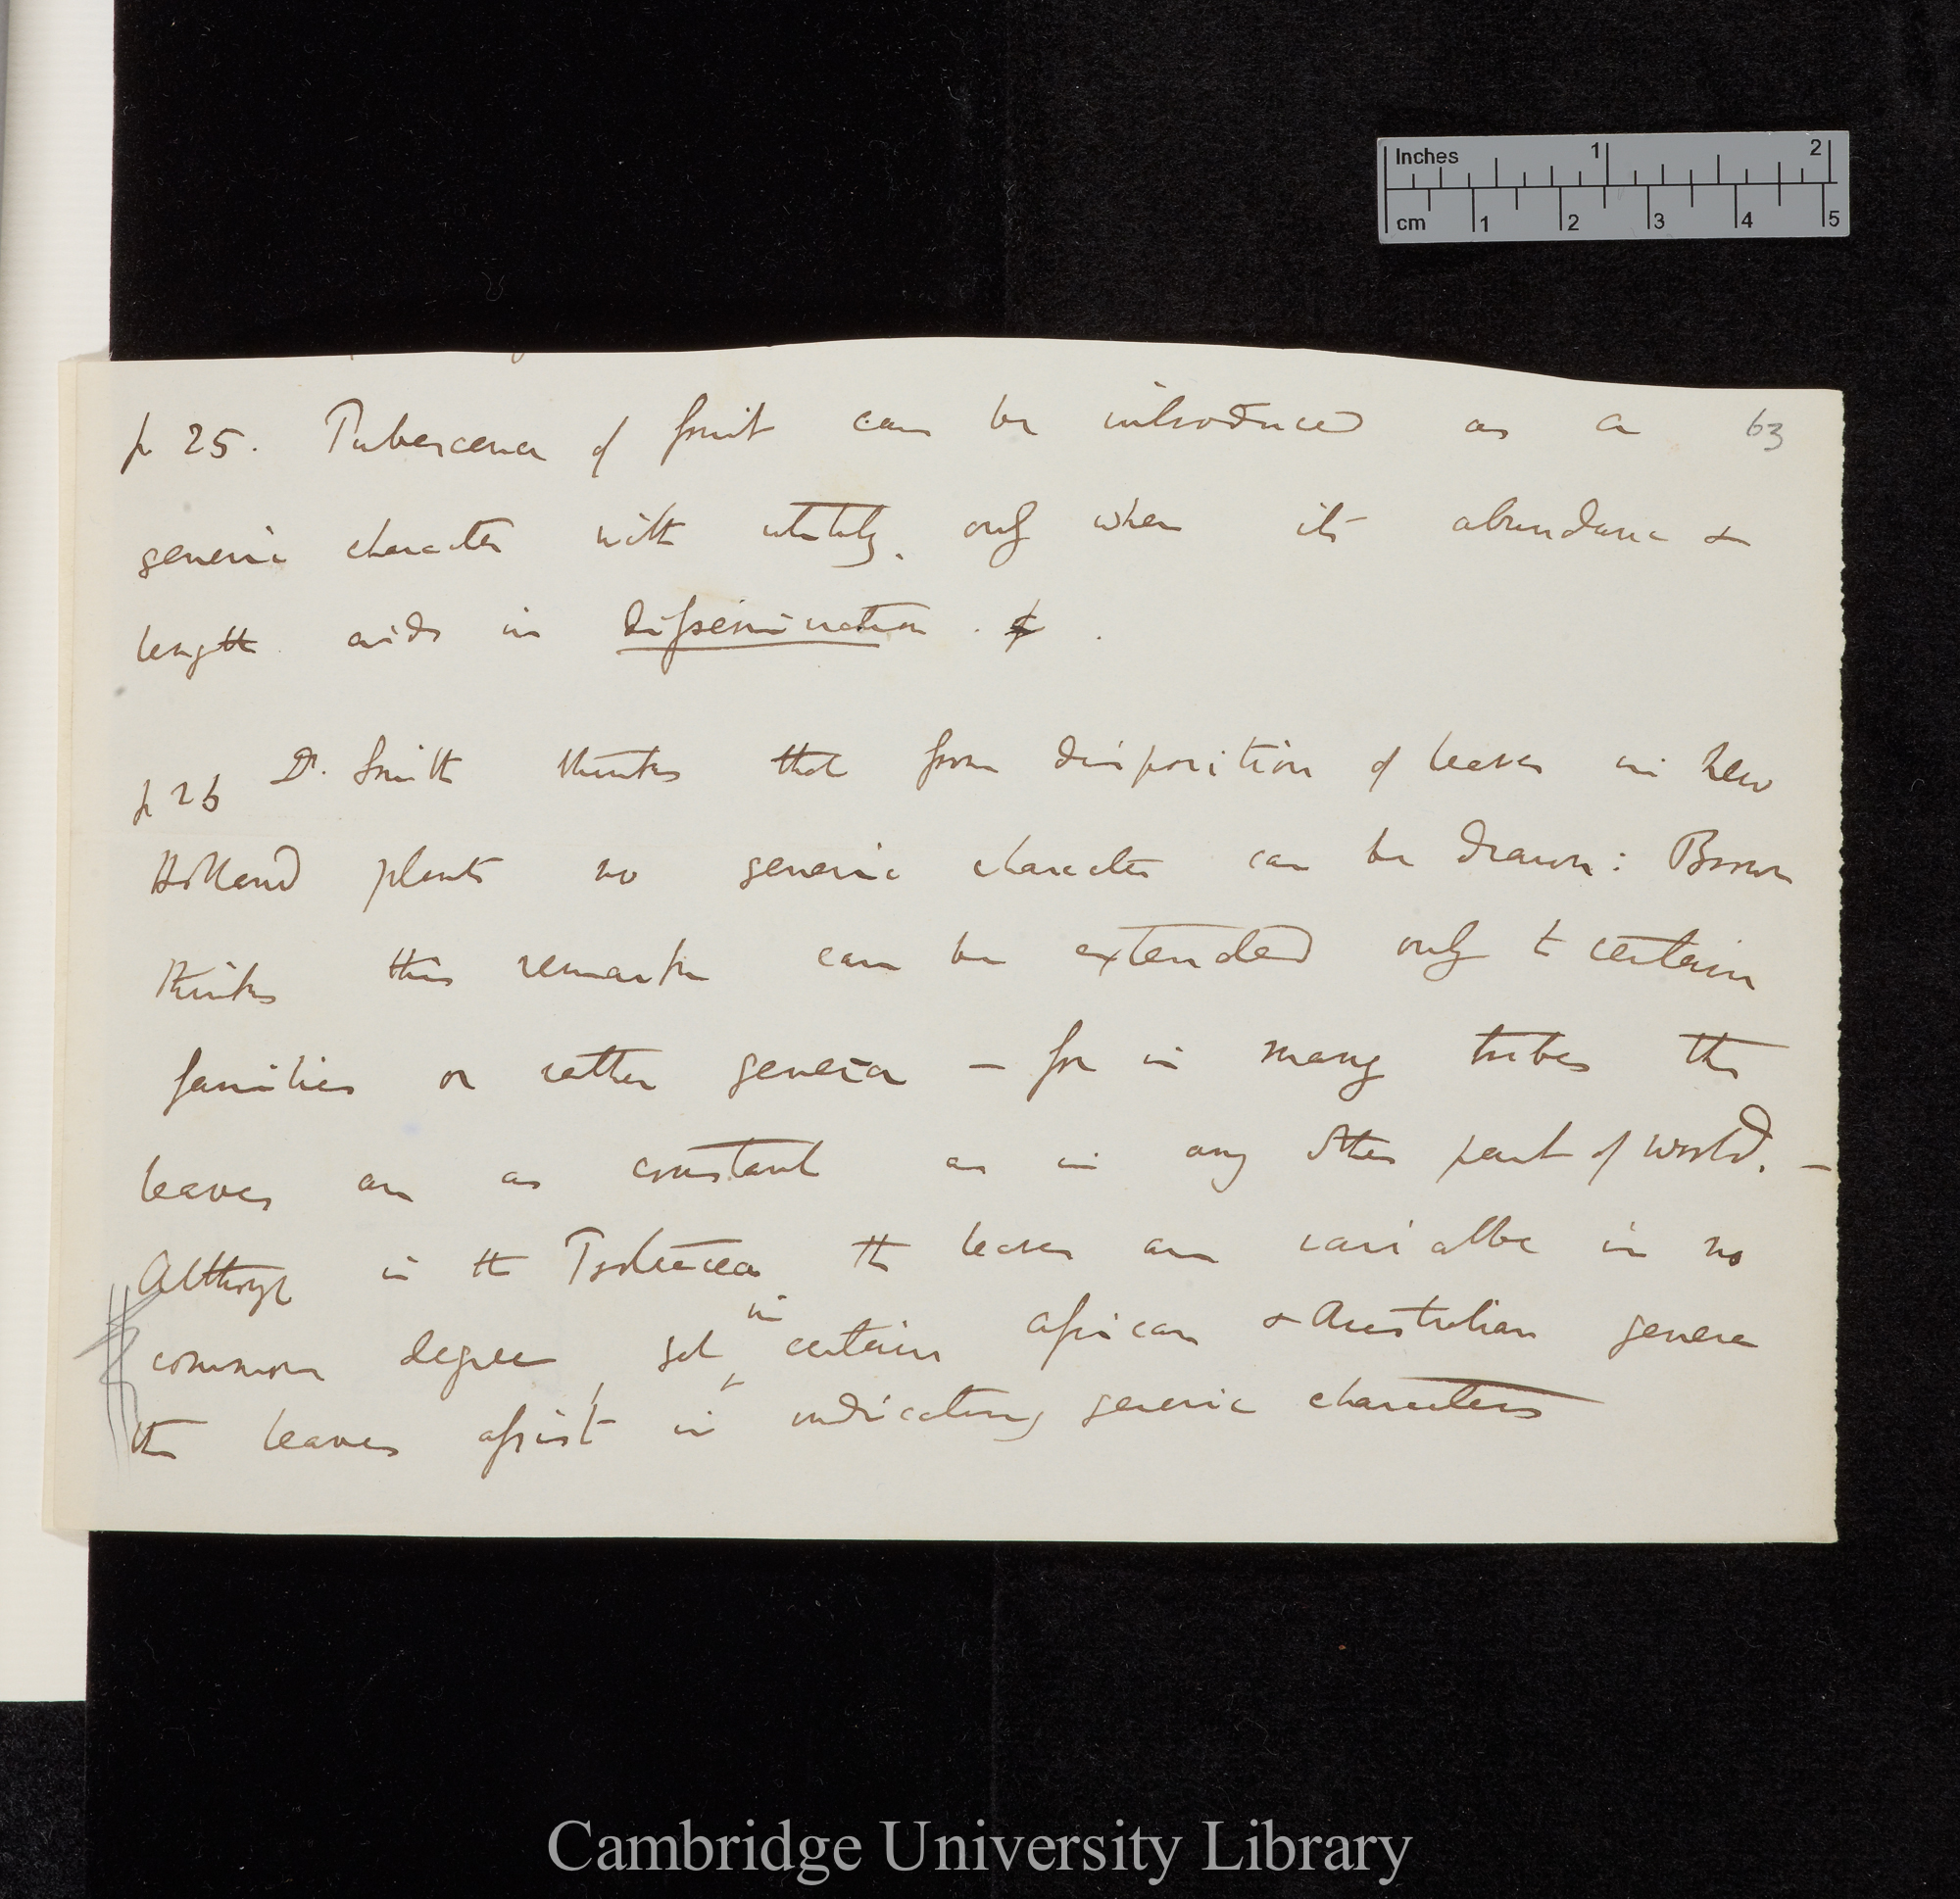 Inches 1 2
cm 1 2 3 4 5
63
p 25. Pubescence of fruit can be introduced as a
generic character with utility. only when its abundance &
length aids in dissemination.
p 26 Dr. Smith thinks that from disposition of leaves in New
Holland plants no generic character can be drawn: Brown
thinks this remark can be extended only to certain
families or rather genera — for in many tribes the
leaves are as constant as in any other part of world. —
Although in the Proteaceae the leaves are variable in no
common degree, yet in certain African & Australian genera
the leaves assist in indicating generic characters
Cambridge University Library